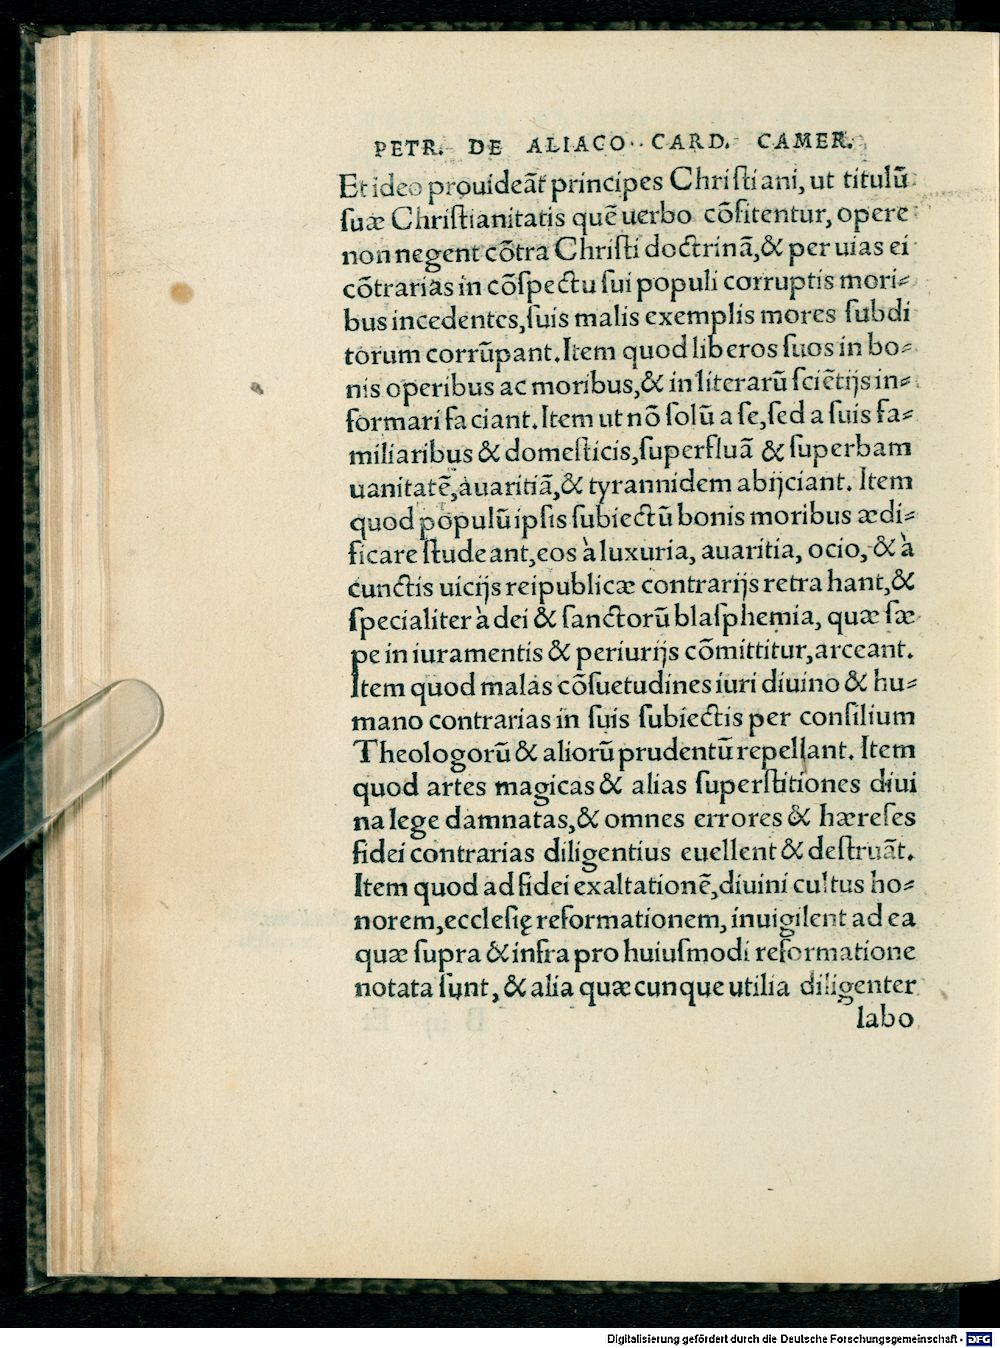 PETR. DE ALIACO. CARD. CAMER.
Et ideo prouideãt principes Christiani, ut titulũ
suæ Christianitatis quẽ uerbo cõfitentur, opere
non negent cõtra Christi doctrinã, & per uias ei
cõtrarias in cõspectu sui populi corruptis mori⸗
bus incedentes, suis malis exemplis mores subdi
torum corrũpant. Item quod liberos suos in bo⸗
nis operibus ac moribus, & in literarũ sciẽtijs in⸗
formari faciant. Item ut nõ solũ a se, sed a suis fa⸗
miliaribus & domesticis, superfluã & superbam
uanitatẽ, auaritiã, & tyrannidem abijciant. Item
quod populũ ipsis subiectũ bonis moribus ædi⸗
ficare studeant, eos à luxuria, auaritia, ocio, & à
cunctis uicijs reipublicæ contrarijs retrahant, &
specialiter à dei & sanctorũ blasphemia, quæ sæ
pe in iuramentis & periurijs cõmittitur, arceant.
Item quod malas cõsuetudines iuri diuino & hu⸗
mano contrarias in suis subiectis per consilium
Theologorũ & aliorũ prudentũ repellant. Item
quod artes magicas & alias superstitiones diui
na lege damnatas, & omnes errores & hæreses
fidei contrarias diligentius euellent & destruãt.
Item quod ad fidei exaltationẽ, diuini cultus ho⸗
norem, ecclesię reformationem, inuigilent ad ea
quæ supra & infra pro huiusmodi reformatione
notata sunt, & alia quæcunque utilia diligenter
labo
Digitalisierung gefördert durch die Deutsche Forschungsgemeinschaft - DFG